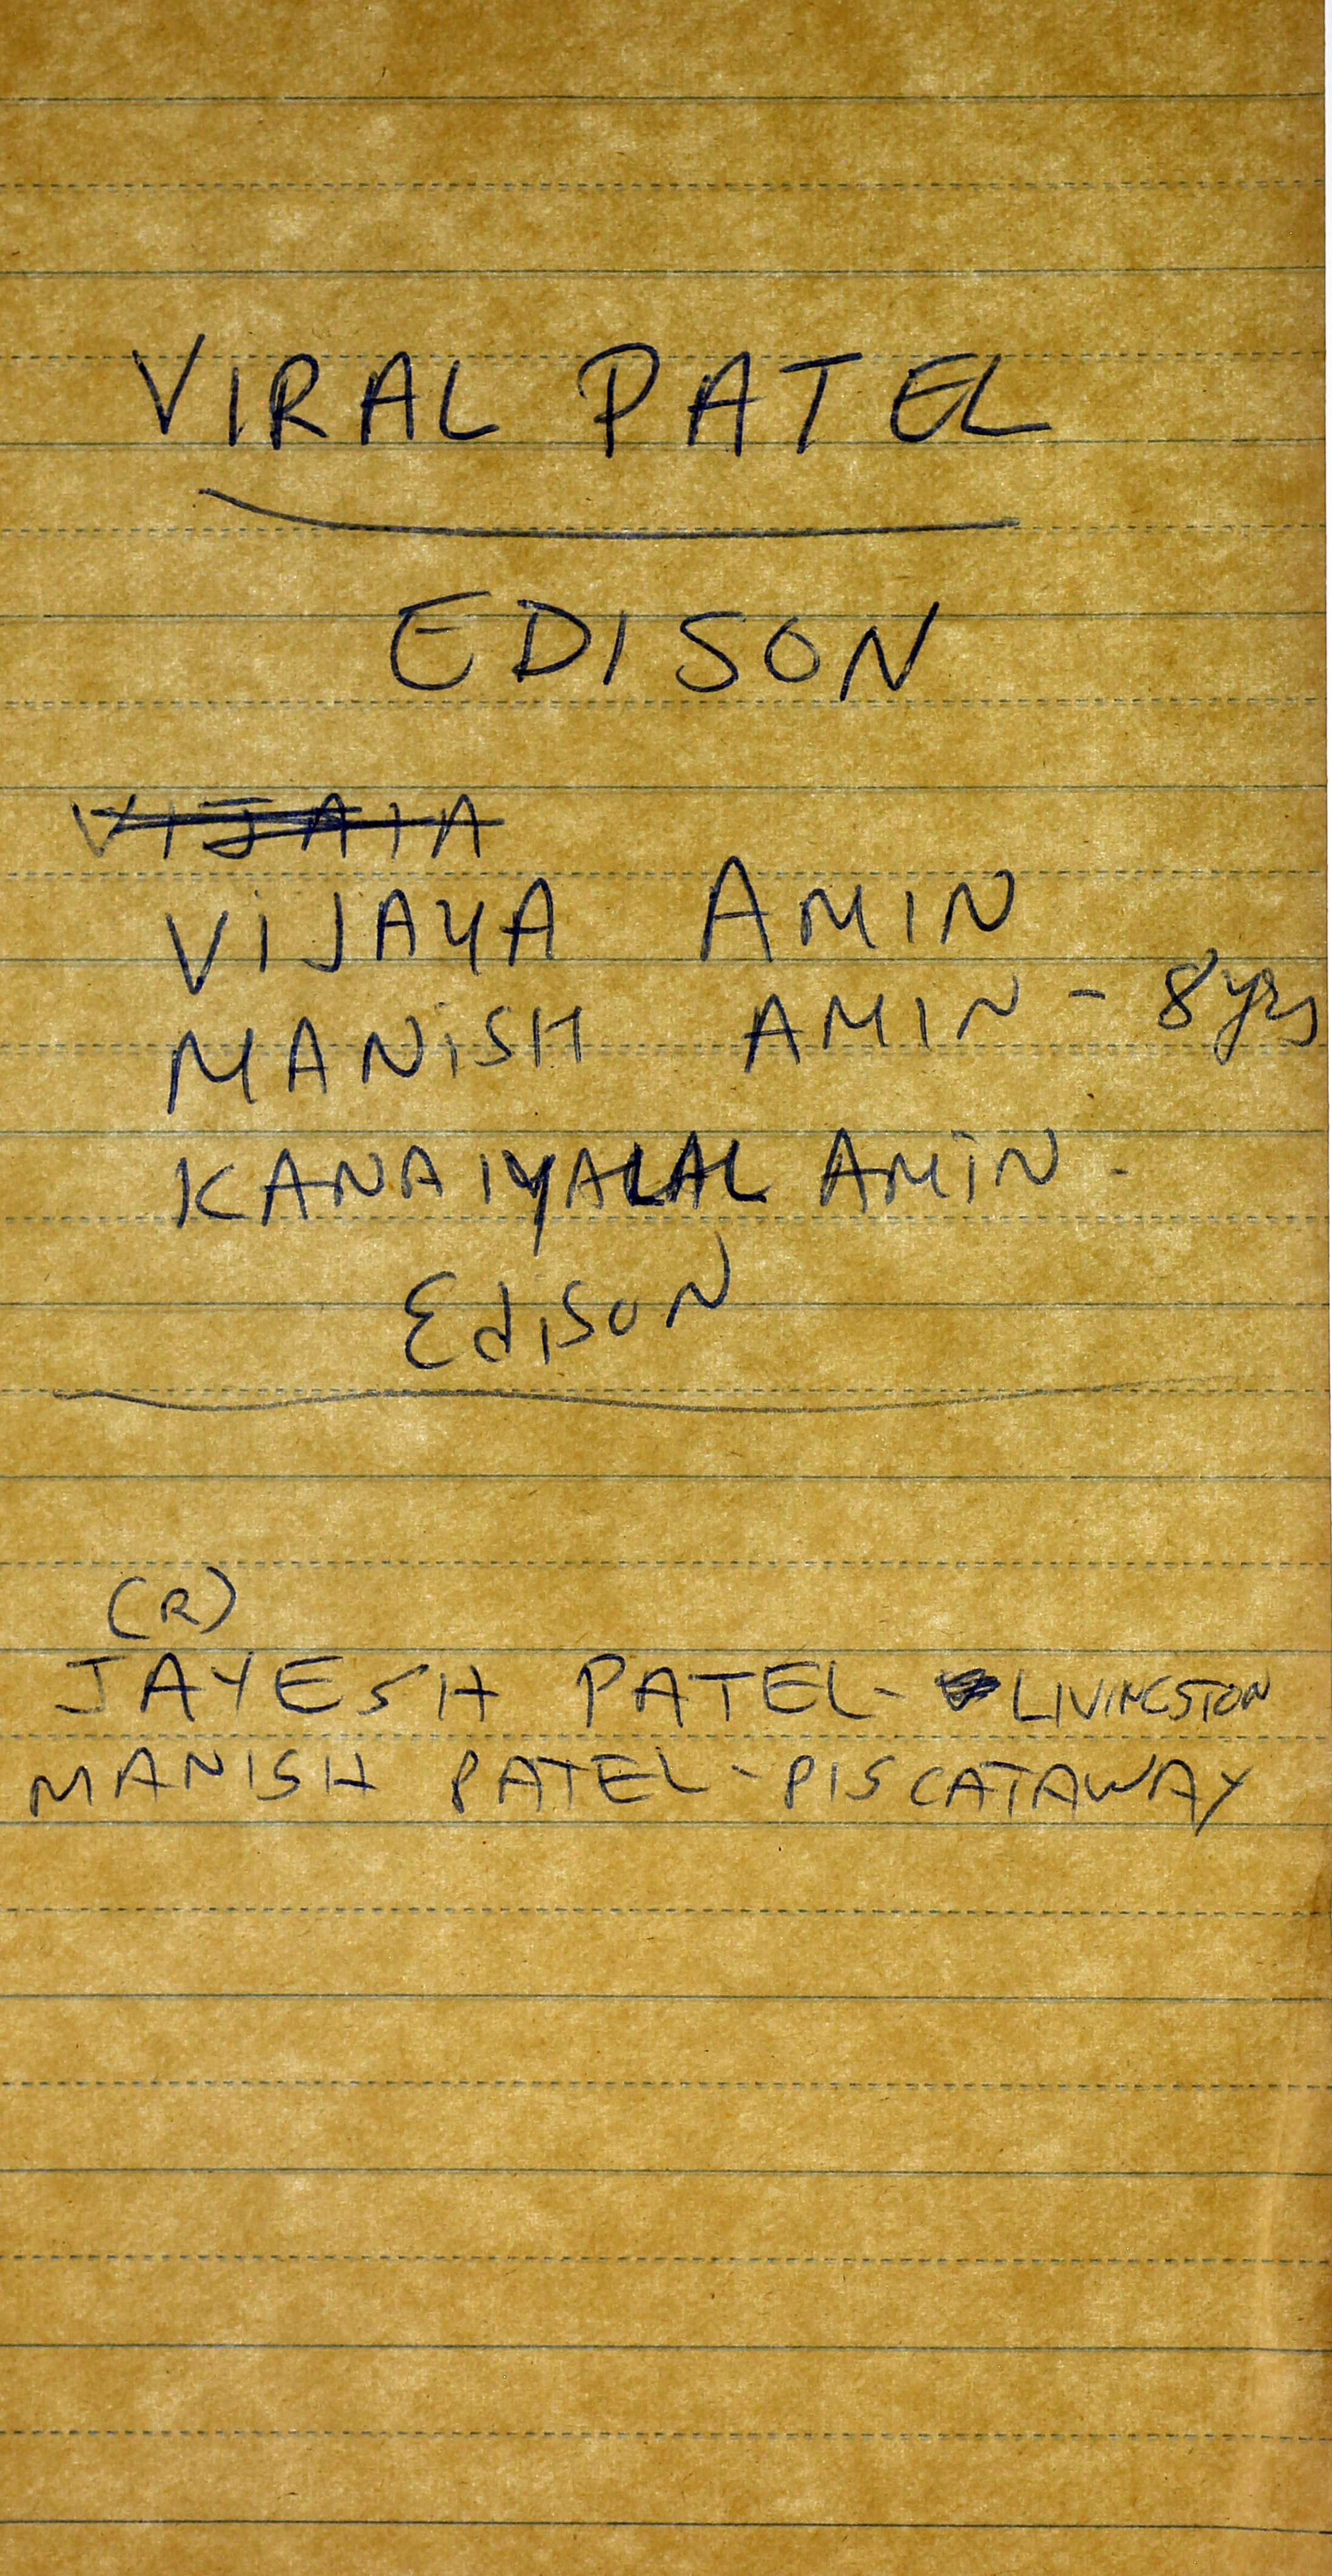 VIRAL PATEL
EDISON
VIJAIA
VIJAYA AMIN
MANISH AMIN - 8 yrs
KANAIYALAL AMIN -
Edison
(R)
JAYESH PATEL - LIVINGSTON
MANISH PATEL - PISCATAWAY